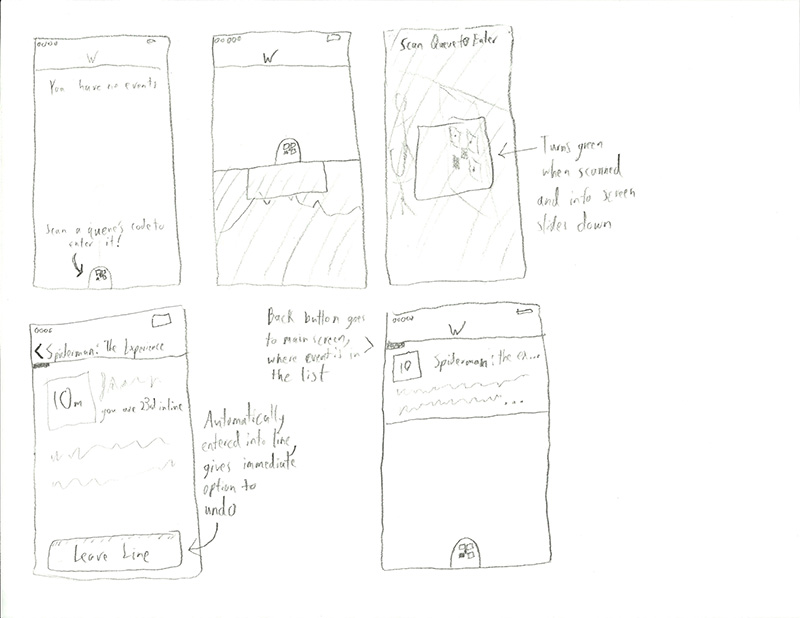 W
You have no events
Scan a queue's code to
enter it!
W
Scan Queue to Enter
Turns green
when scanned
and info screen
slides down
Spiderman: The Experience
10m
you are 23rd in line
Leave Line
Automatically
entered into line,
gives immediate
option to
undo
Back button goes
to main screen,
where event is in
the list
W
10
Spiderman: the ex...
...